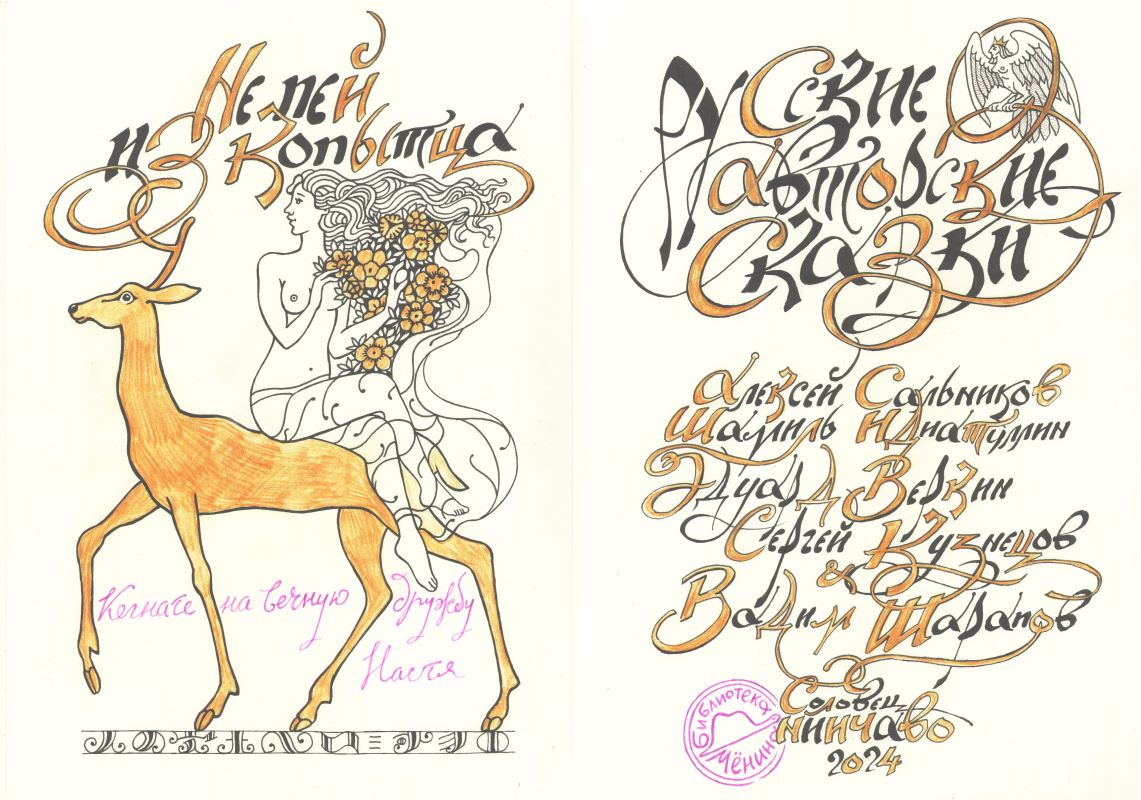 Не пей
из копытца
на вечную дружбу
Настя
Русские
авторские
сказки
Алексей Сальников
Шамиль Идиатуллин
Эдуард Веркин
Сергей Кузнецов
&
Вадим Шарапов
Соловец
НИИЧАВО
2024
Библиотека